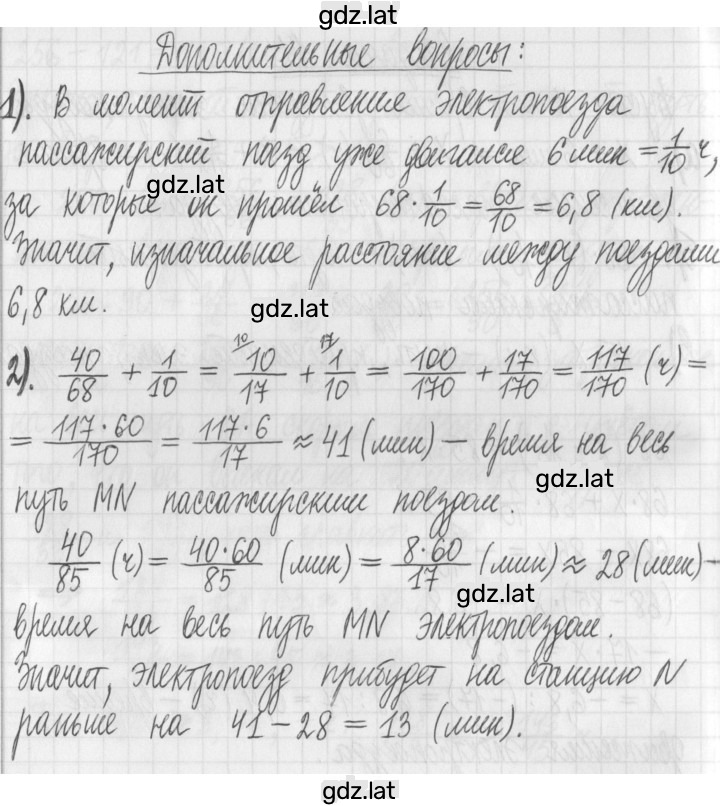 gdz.lat
Дополнительные вопросы:
1). В момент отправления электропоезда
пассажирский поезд уже двигался 6 мин = 1/10 ч,
gdz.lat
за которые он прошёл 68 · 1/10 = 68/10 = 6,8 (км).
Значит, изначальное расстояние между поездами
6,8 км.
gdz.lat
2). 40/68 + 1/10 = ¹⁰⁾10/17 + ¹⁷⁾1/10 = 100/170 + 17/170 = 117/170 (ч) =
= 117·60/170 = 117·6/17 ≈ 41 (мин) – время на весь
gdz.lat
путь MN пассажирским поездом.
40/85 (ч) = 40·60/85 (мин) = 8·60/17 (мин) ≈ 28 (мин) –
gdz.lat
время на весь путь MN электропоездом.
Значит, электропоезд прибудет на станцию N
раньше на 41 – 28 = 13 (мин).
gdz.lat